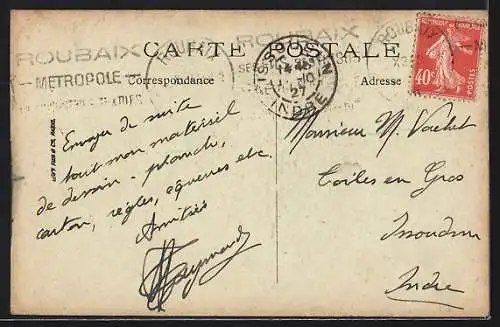 ROUBAIX
ROUBAIX
ROUBAIX
CARTE POSTALE
METROPOLE
Correspondance
Adresse
ISSOUDUN
INDRE
27
RÉPUBLIQUE FRANÇAISE
40c
LEVY FILS & Cie, PARIS.
Envoyer de suite
tout mon matériel
de dessin - planche,
carton, règles, équerres etc.
Amitiés
Raymond
Monsieur M. Vachet
Toiles en Gros
Issoudun
Indre